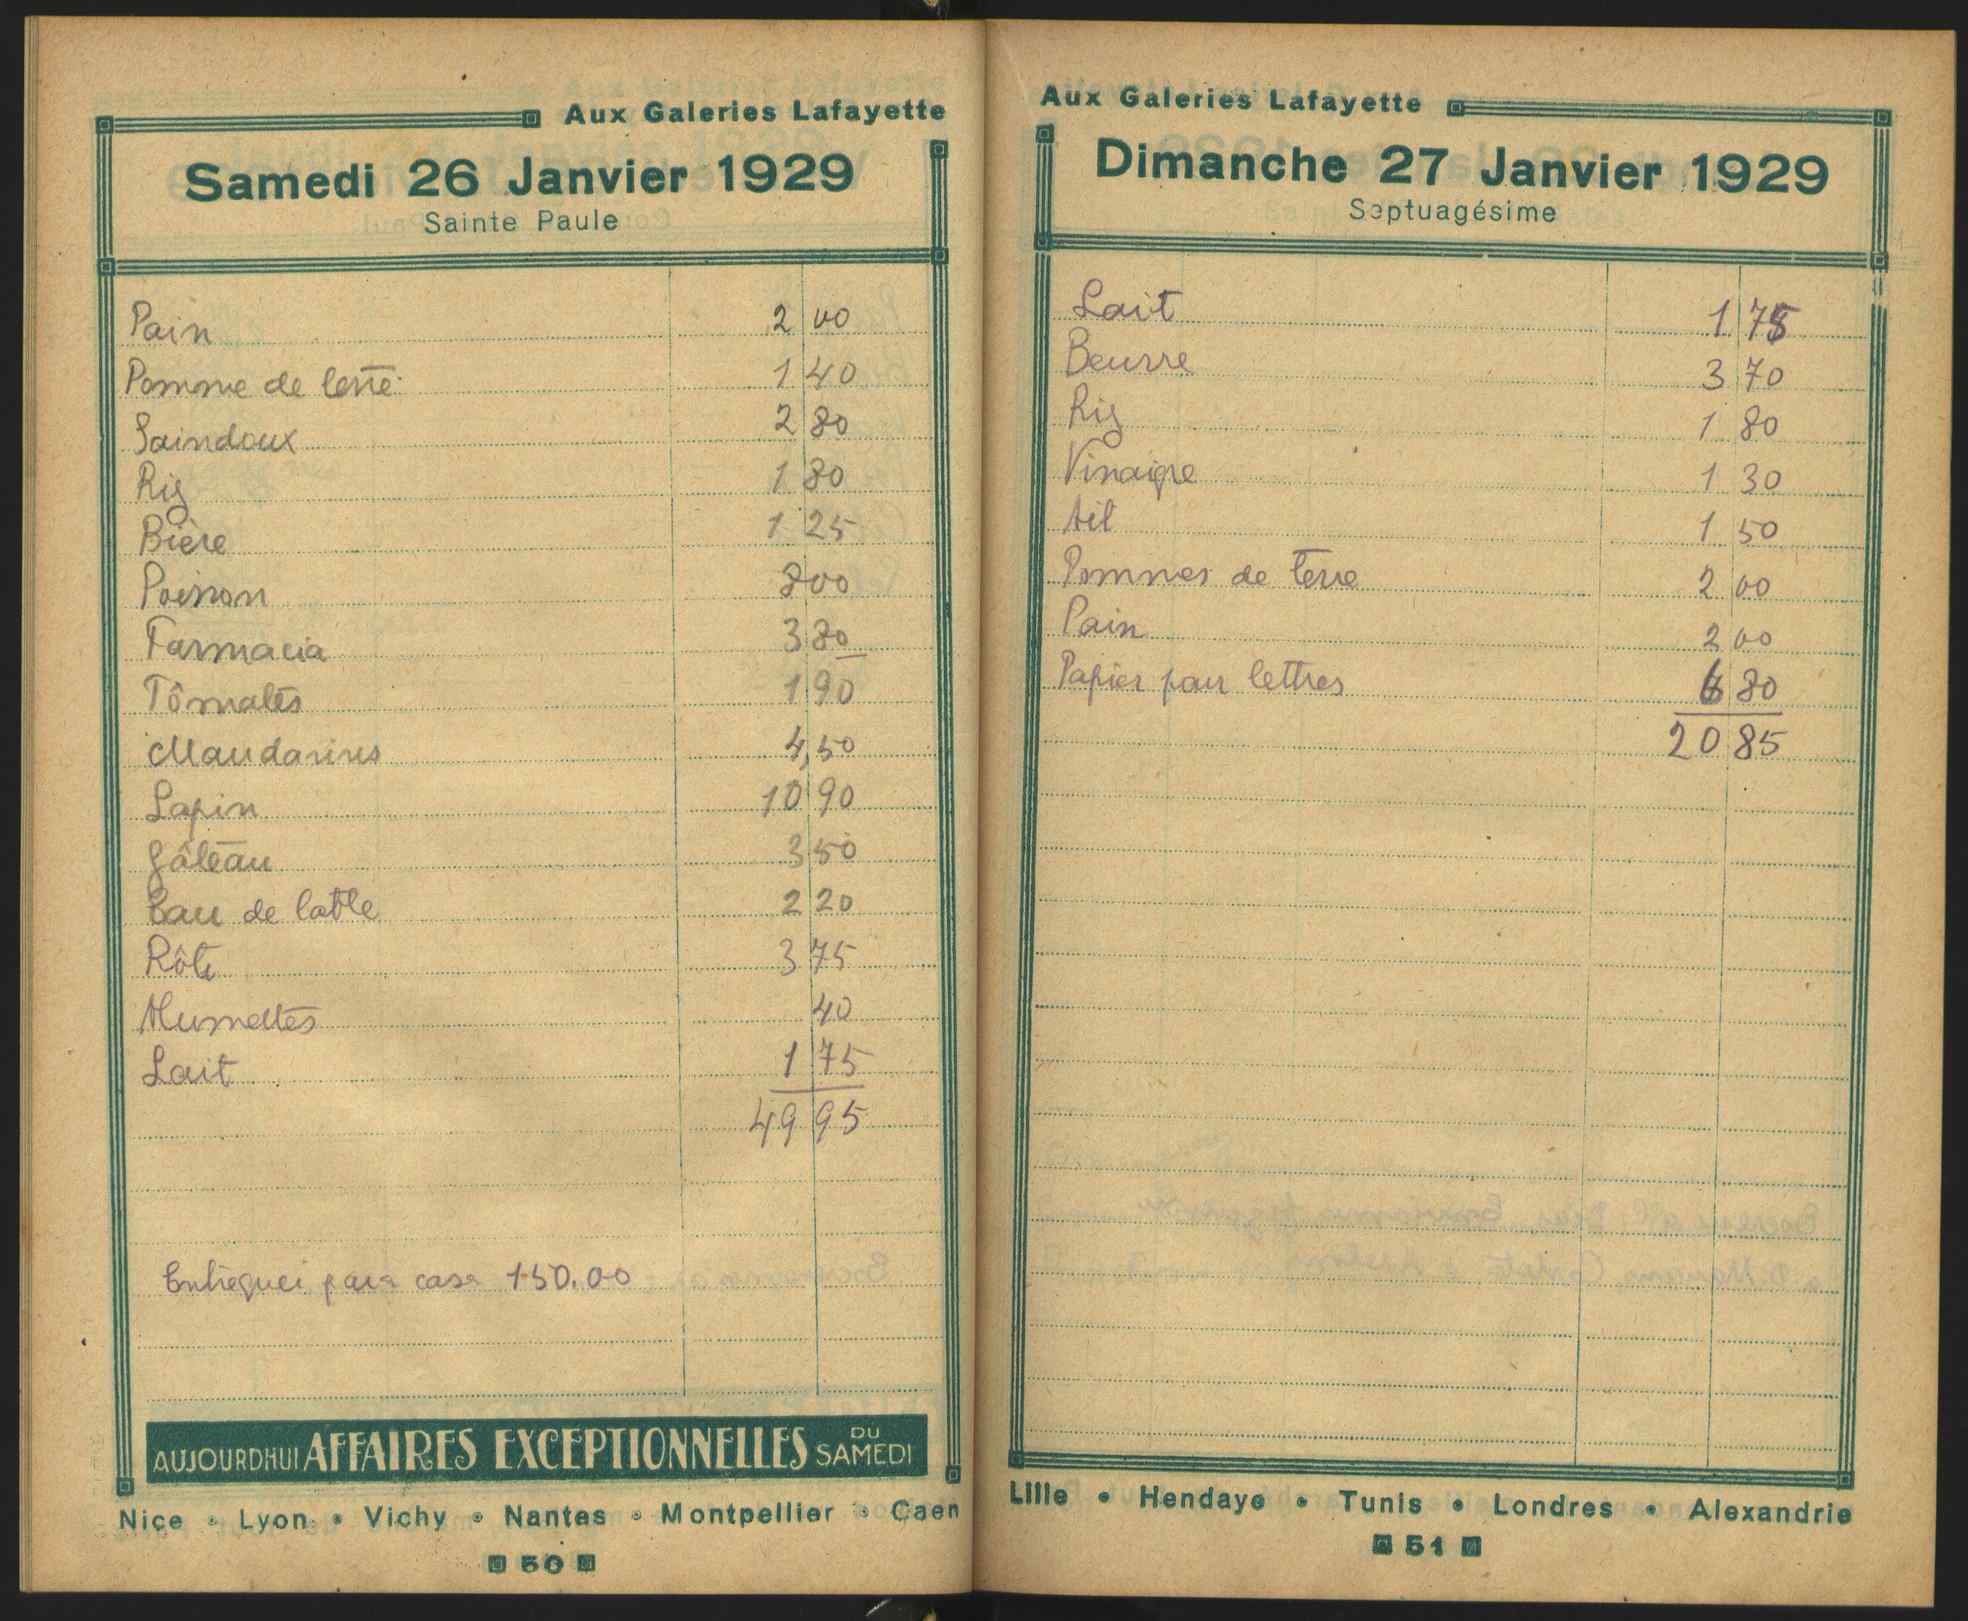 Aux Galeries Lafayette
Samedi 26 Janvier 1929
Sainte Paule
Pain 2 00
Pomme de terre 1 40
Saindoux 2 80
Riz 1 80
Bière 1 25
Poisson 8 00
Farmacia 3 80
Tômates 1 90
Mandarines 4,50
Lapin 10 90
Gâteau 3 50
Eau de table 2 20
Rôti 3 75
Alumettes 40
Lait 1 75
49 95
Entreguei para casa 150.00
AUJOURDHUI AFFAIRES EXCEPTIONNELLES DU SAMEDI
Nice • Lyon • Vichy • Nantes • Montpellier • Caen
50
Aux Galeries Lafayette
Dimanche 27 Janvier 1929
Septuagésime
Lait 1 75
Beurre 3 70
Riz 1 80
Vinaigre 1 30
Ail 1 50
Pommes de terre 2 00
Pain 2 00
Papier pour lettres 6 80
20 85
Lille • Hendaye • Tunis • Londres • Alexandrie
51